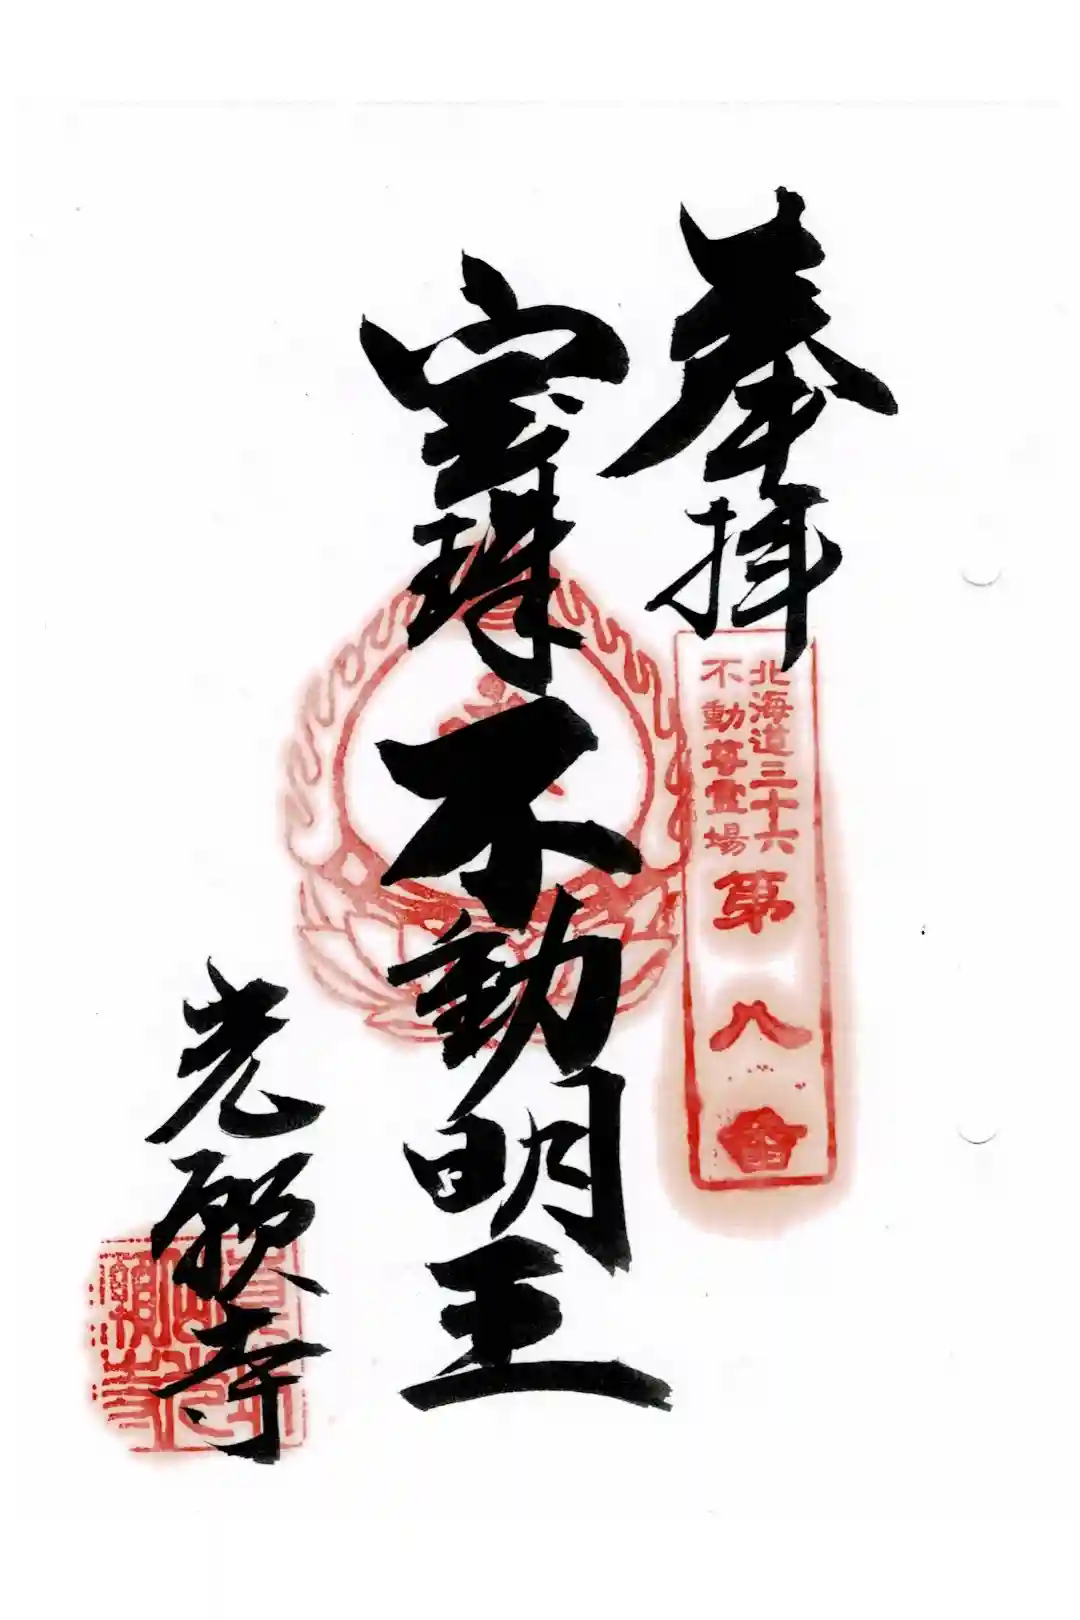 奉拝
北海道三十六
不動尊霊場
第八番
宝珠不動明王
光願寺